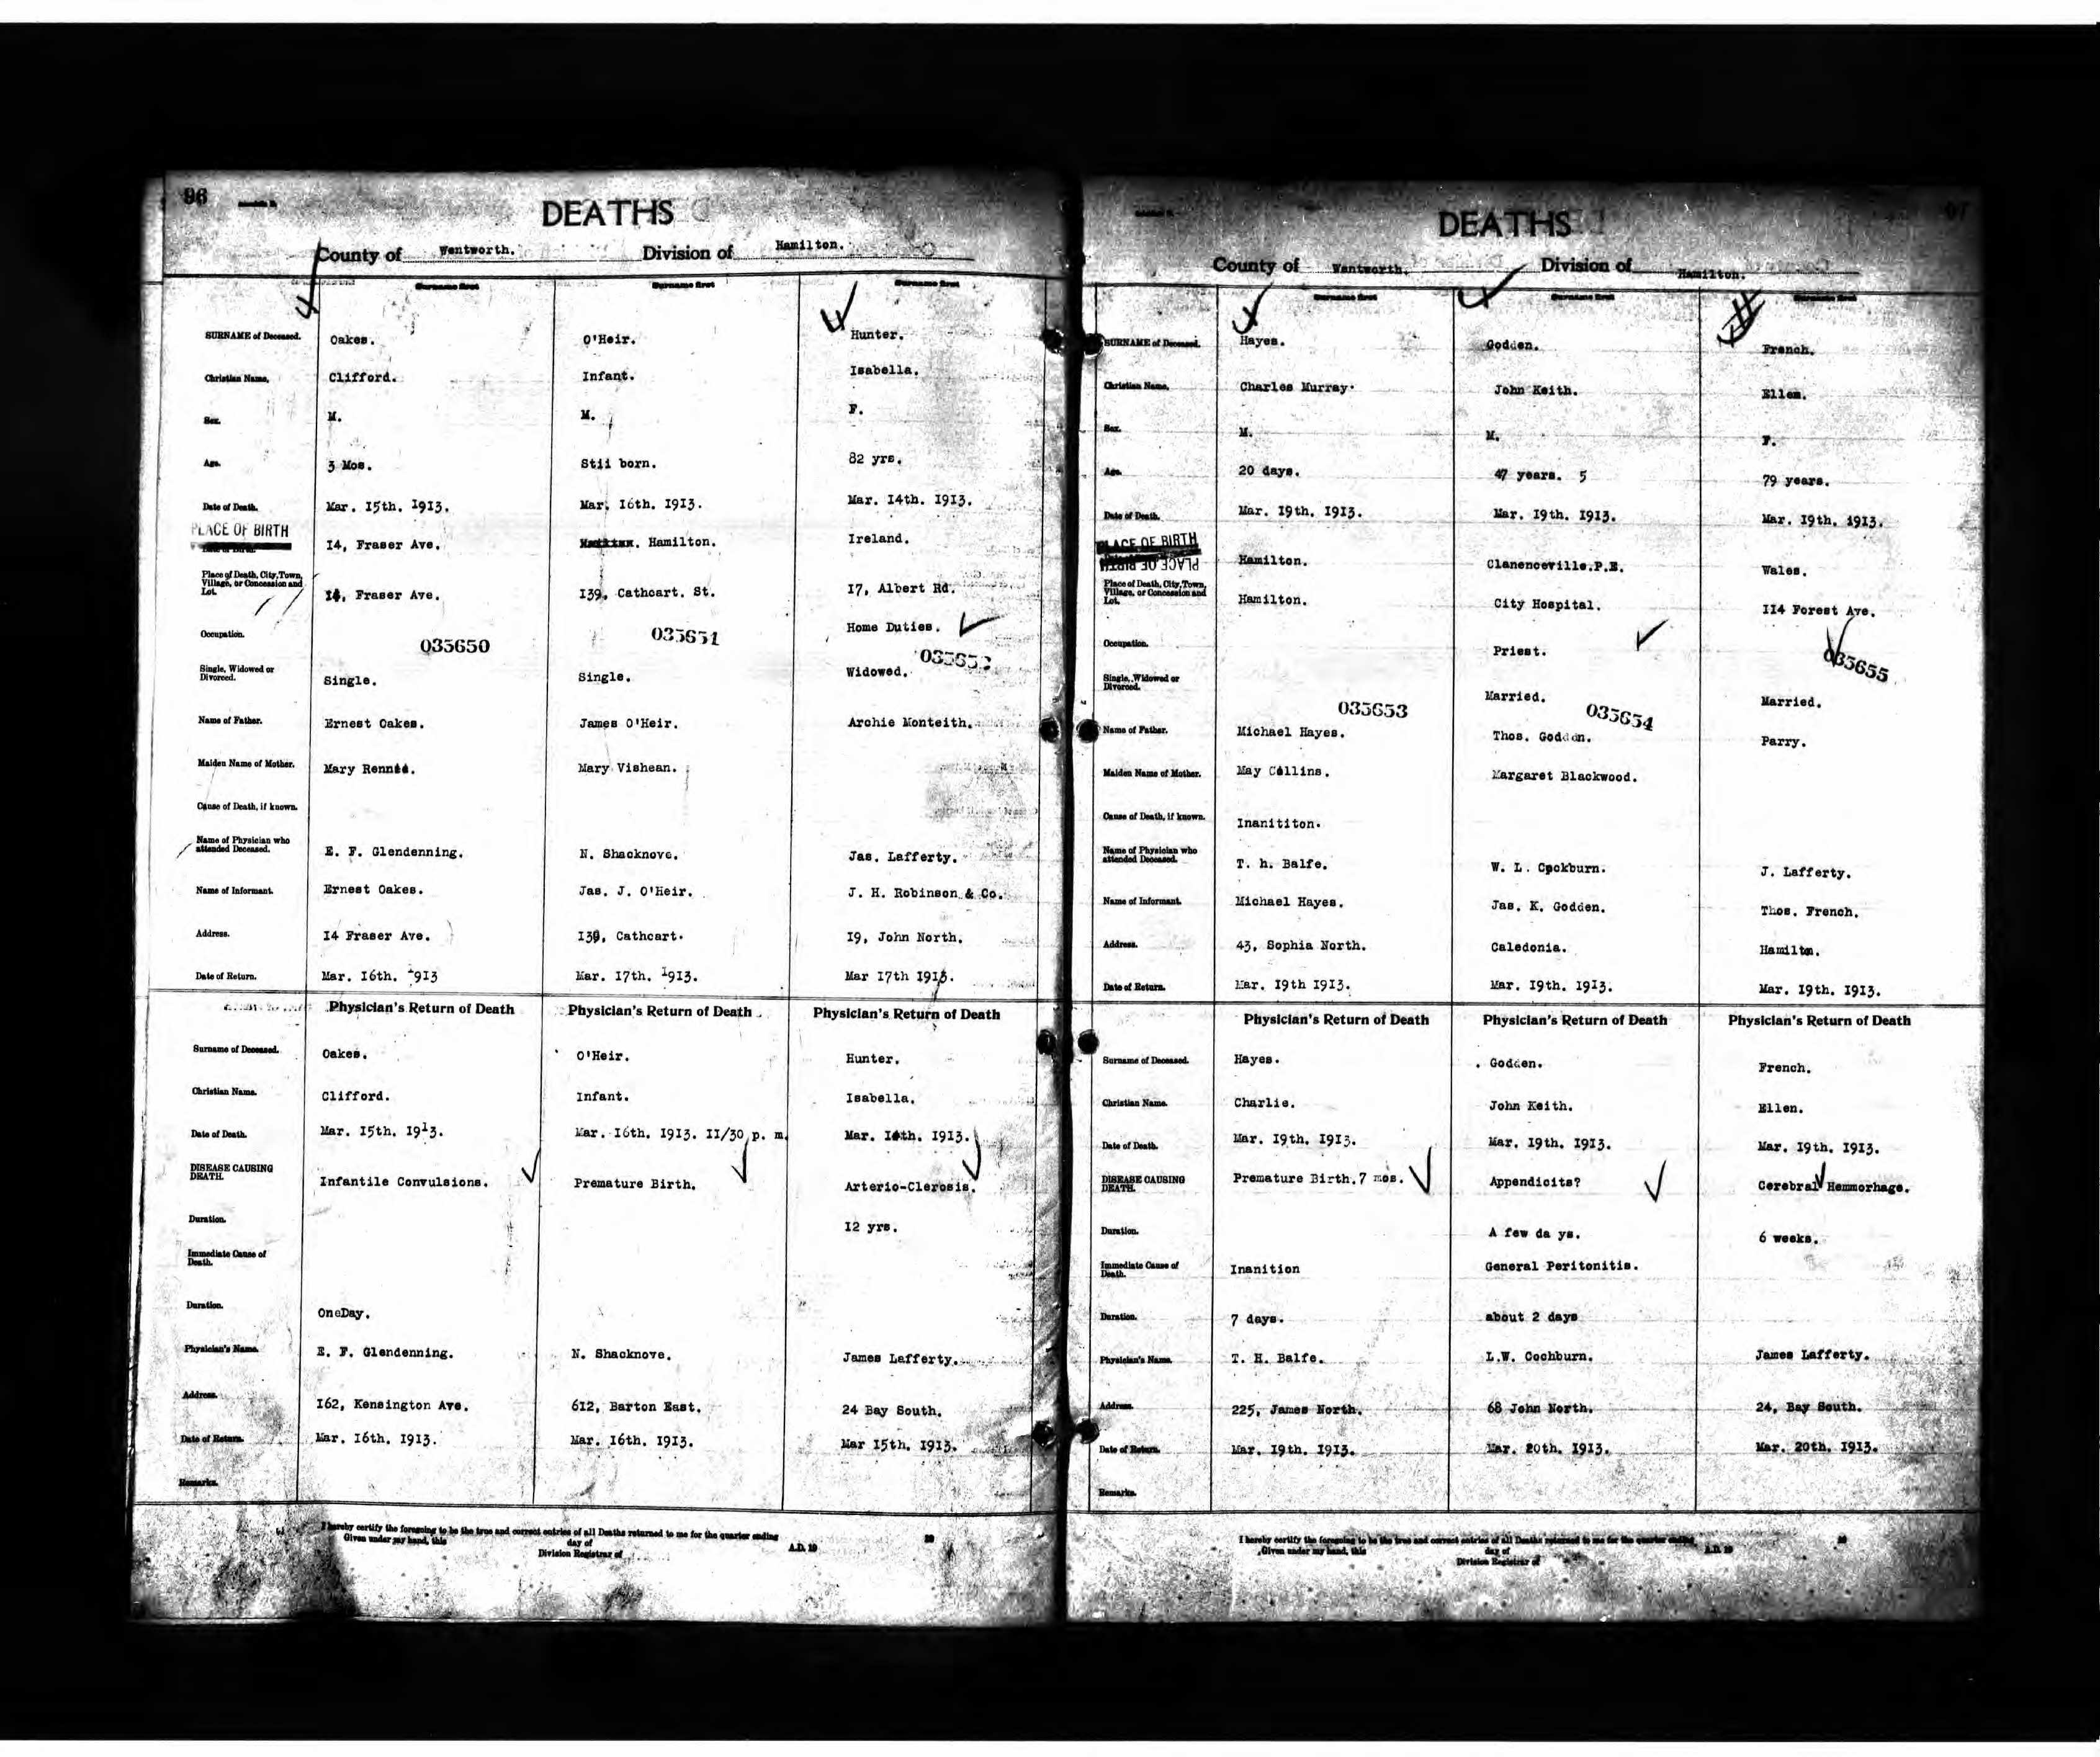 96
DEATHS
County of Wentworth. Division of Hamilton.
Surname first Surname first Surname first
SURNAME of Deceased. Oakes. O'Heir. Hunter.
Christian Name. Clifford. Infant. Isabella.
Sex. M. M. F.
Age. 3 Mos. Stil born. 82 yrs.
Date of Death. Mar. 15th. 1913. Mar. 16th. 1913. Mar. 14th. 1913.
PLACE OF BIRTH 14, Fraser Ave. Hamilton. Ireland.
Place of Death, City, Town, Village, or Concession and Lot. 14, Fraser Ave. 139, Cathcart. St. 17, Albert Rd.
Occupation. Home Duties.
035650 035651 035652
Single, Widowed or Divorced. Single. Single. Widowed.
Name of Father. Ernest Oakes. James O'Heir. Archie Monteith.
Maiden Name of Mother. Mary Mary Vishean.
Cause of Death, if known.
Name of Physician who attended Deceased. E. F. Glendenning. N. Shacknove. Jas. Lafferty.
Name of Informant. Ernest Oakes. Jas. J. O'Heir. J. H. Robinson & Co.
Address. 14 Fraser Ave. 139, Cathcart. 19, John North.
Date of Return. Mar. 16th. 1913 Mar. 17th. 1913. Mar 17th 1913.
Physician's Return of Death Physician's Return of Death Physician's Return of Death
Surname of Deceased. Oakes. O'Heir. Hunter.
Christian Name. Clifford. Infant. Isabella.
Date of Death. Mar. 15th. 1913. Mar. 16th. 1913. 11/30 p. m. Mar. 14th. 1913.
DISEASE CAUSING DEATH. Infantile Convulsions. Premature Birth. Arterio-Clerosis.
Duration. 12 yrs.
Immediate Cause of Death.
Duration. OneDay.
Physician's Name. E. F. Glendenning. N. Shacknove. James Lafferty.
Address. 162, Kensington Ave. 612, Barton East. 24 Bay South.
Date of Return. Mar. 16th. 1913. Mar. 16th. 1913. Mar 15th. 1913.
Remarks.
I hereby certify the foregoing to be the true and correct entries of all Deaths returned to me for the quarter ending 19
Given under my hand, this day of A.D. 19
Division Registrar of
97
DEATHS
County of Wentworth. Division of Hamilton.
Surname first Surname first Surname first
SURNAME of Deceased. Hayes. Godden. French.
Christian Name. Charles Murray. John Keith. Ellen.
Sex. M. M. F.
Age. 20 days. 47 years. 5 79 years.
Date of Death. Mar. 19th. 1913. Mar. 19th. 1913. Mar. 19th. 1913.
PLACE OF BIRTH Hamilton. Clanenceville.P.E. Wales.
PLACE OF BIRTH
Place of Death, City, Town, Village, or Concession and Lot. Hamilton. City Hospital. 114 Forest Ave.
Occupation. Priest.
035655
Single, Widowed or Divorced. Married. Married.
035653 035654
Name of Father. Michael Hayes. Thos. Godden. Parry.
Maiden Name of Mother. May Collins. Margaret Blackwood.
Cause of Death, if known. Inanititon.
Name of Physician who attended Deceased. T. h. Balfe. W. L. Cockburn. J. Lafferty.
Name of Informant. Michael Hayes. Jas. K. Godden. Thos. French.
Address. 43, Sophia North. Caledonia. Hamilton.
Date of Return. Mar. 19th 1913. Mar. 19th. 1913. Mar. 19th. 1913.
Physician's Return of Death Physician's Return of Death Physician's Return of Death
Surname of Deceased. Hayes. Godden. French.
Christian Name. Charlie. John Keith. Ellen.
Date of Death. Mar. 19th. 1913. Mar. 19th. 1913. Mar. 19th. 1913.
DISEASE CAUSING DEATH. Premature Birth.7 mos. Appendicits? Cerebral Hemmorhage.
Duration. A few da ys. 6 weeks.
Immediate Cause of Death. Inanition General Peritonitis.
Duration. 7 days. about 2 days
Physician's Name. T. H. Balfe. L.W. Cochburn. James Lafferty.
Address. 225, James North. 68 John North. 24, Bay South.
Date of Return. Mar. 19th. 1913. Mar. 20th. 1913. Mar. 20th. 1913.
Remarks.
I hereby certify the foregoing to be the true and correct entries of all Deaths returned to me for the quarter ending 19
Given under my hand, this day of A.D. 19
Division Registrar of